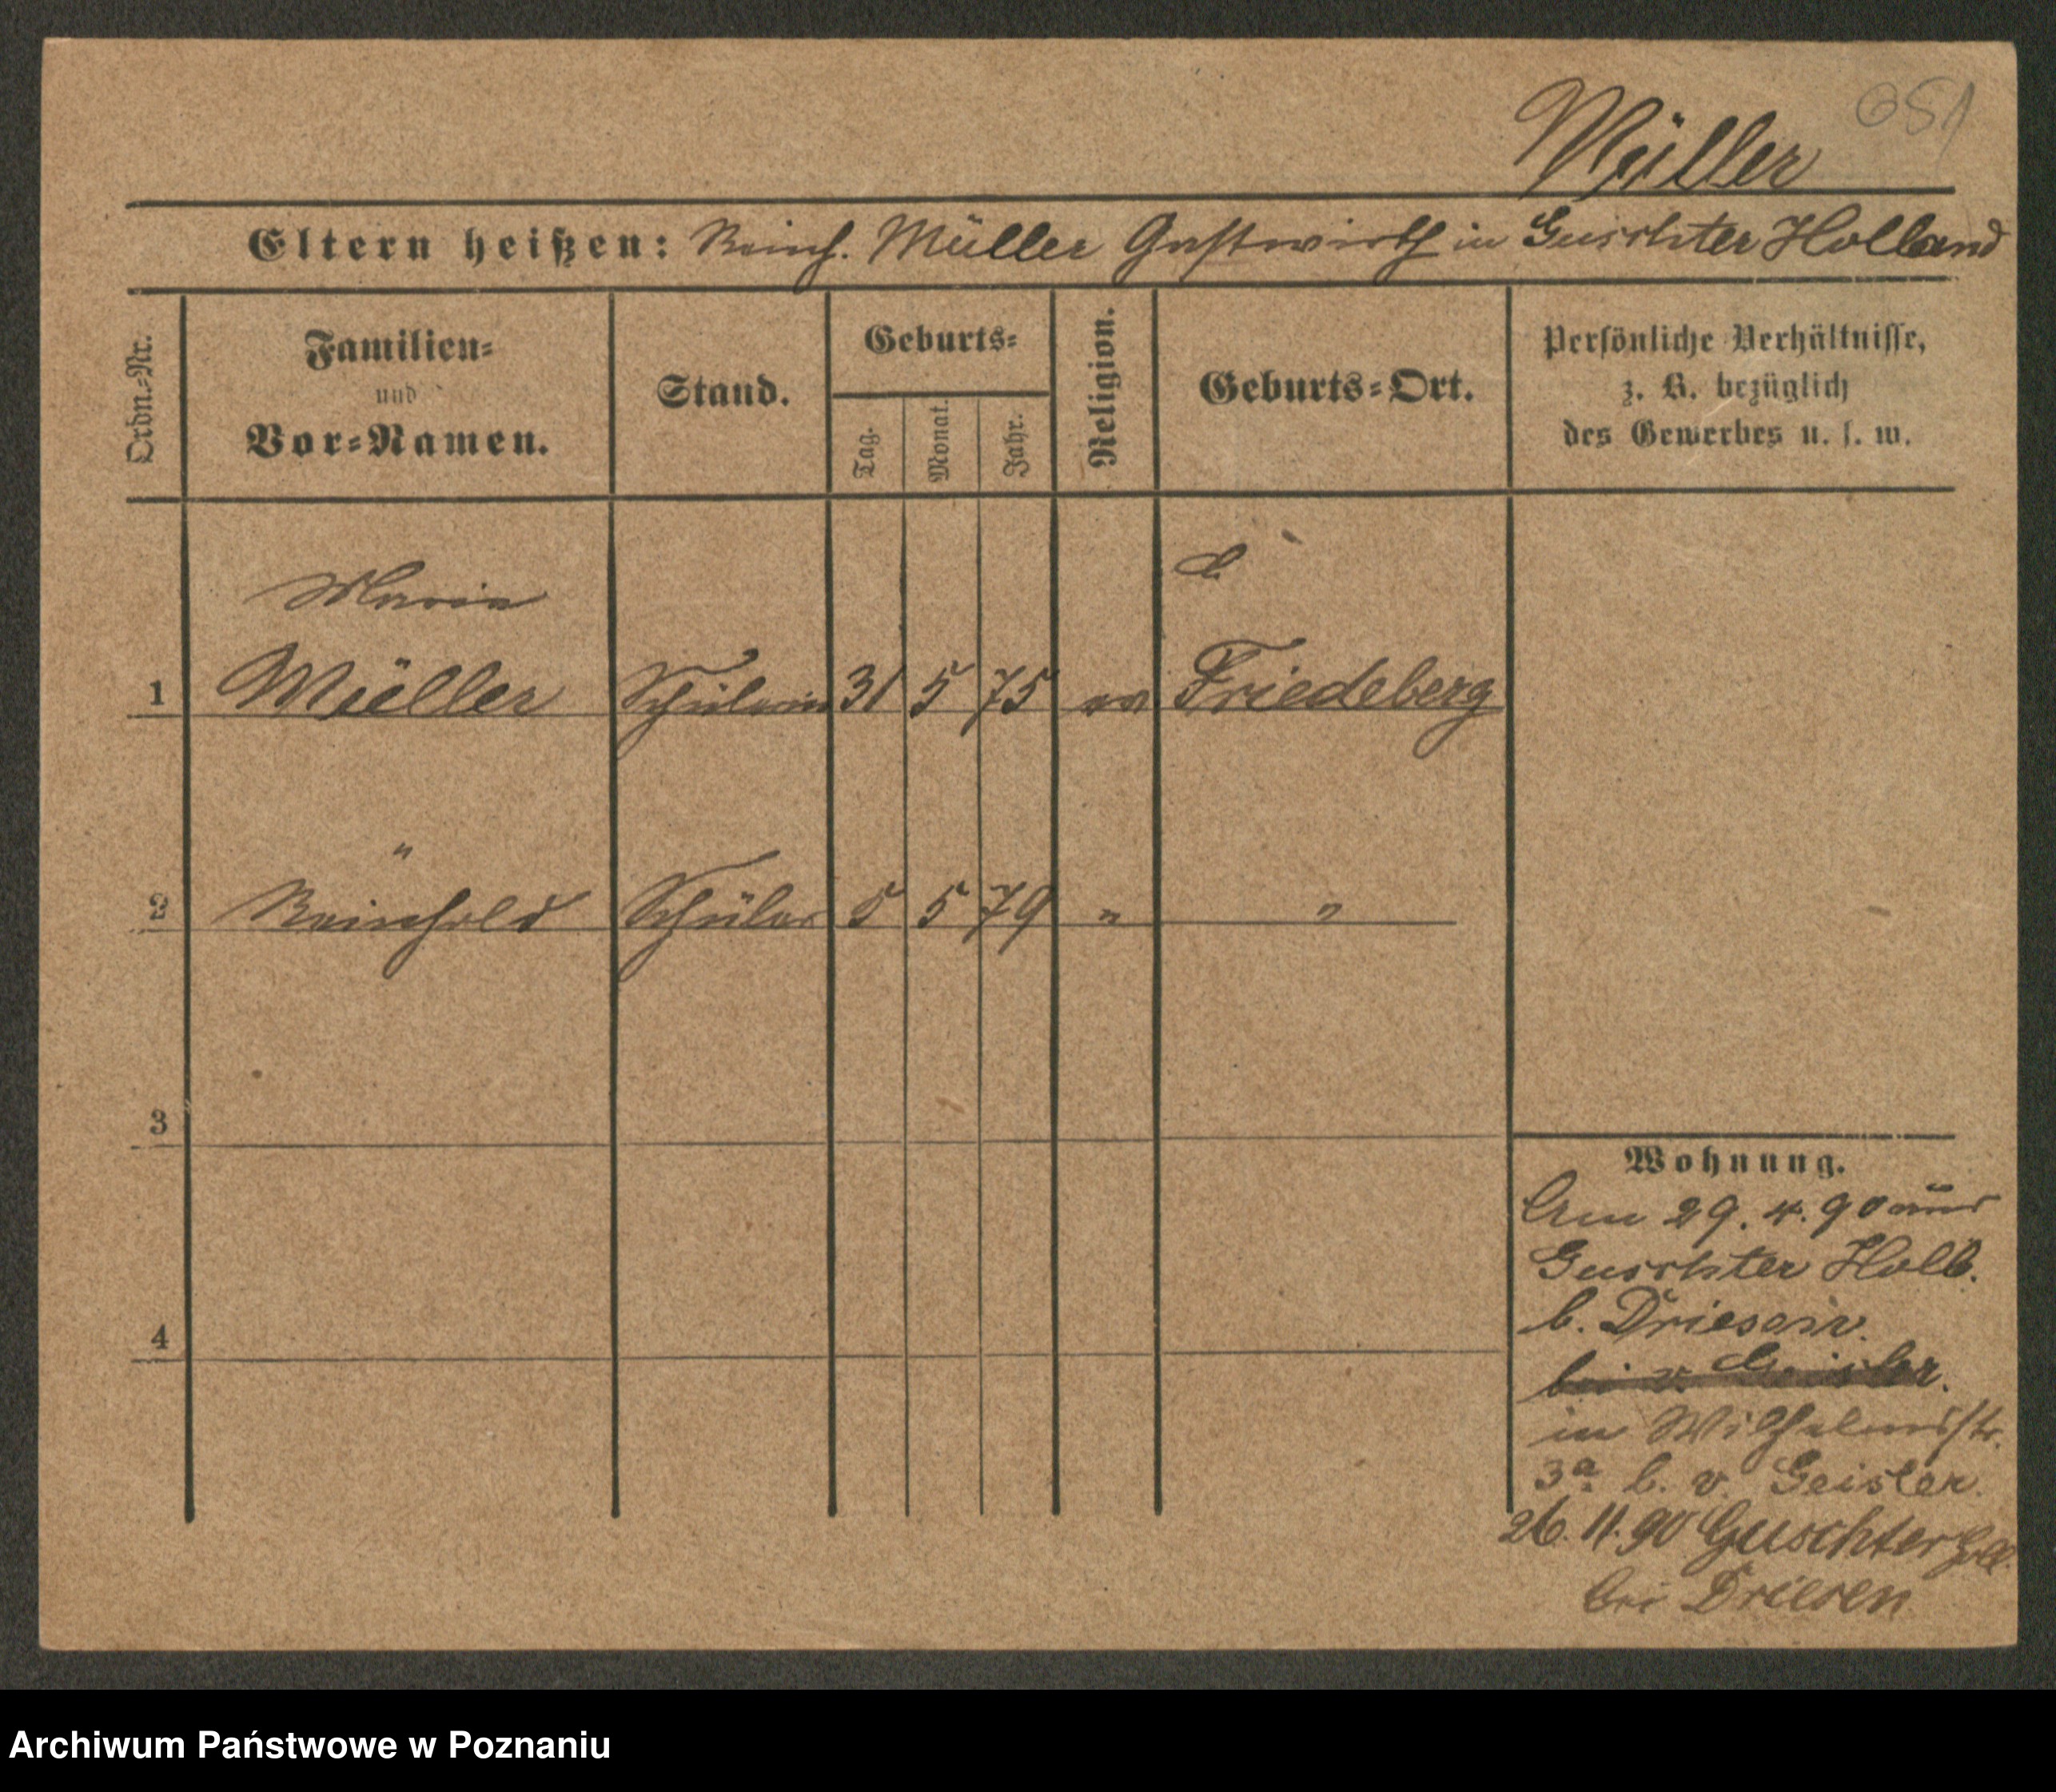 Müller
651
Eltern heißen: Reinh. Müller Gastwirth in Guschter Holland
Ordn.-Nr.
Familien-
und
Vor-Namen.
Stand.
Geburts-
Tag.
Monat.
Jahr.
Religion.
Geburts-Ort.
Persönliche Verhältnisse,
z. B. bezüglich
des Gewerbes u. s. w.
Maria
1 Müller Schülerin 31 5 75 ev Friedeberg
"
2 Reinhold Schüler 5 5 79 " "
3
4
Wohnung.
Am 29. 4. 90 aus
Guschter Holl.
b. Driesen.
bei v. Geisler.
in Wilhelmstr.
3a. b. v. Geisler.
26. 11. 90 Guschter Holl.
bei Driesen
Archiwum Państwowe w Poznaniu